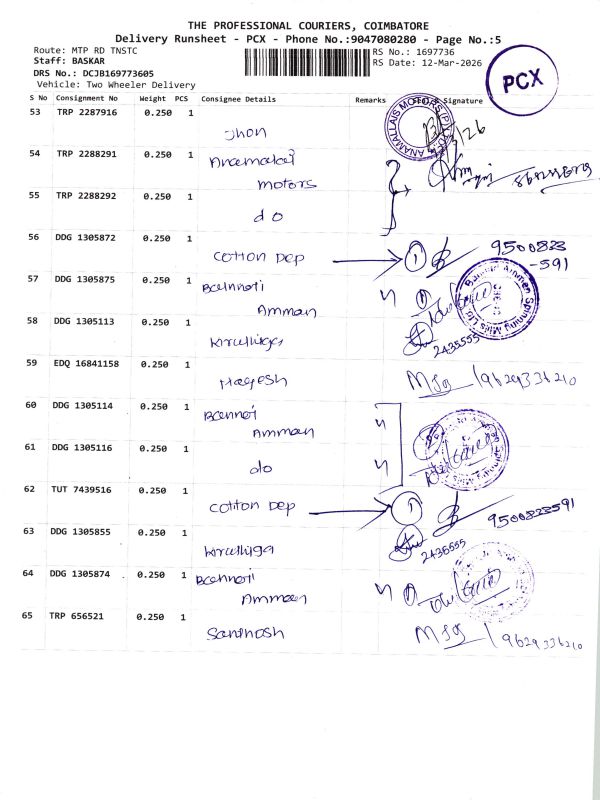 THE PROFESSIONAL COURIERS, COIMBATORE
Delivery Runsheet - PCX - Phone No.:9047080280 - Page No.:5
Route: MTP RD TNSTC
RS No.: 1697736
Staff: BASKAR
RS Date: 12-Mar-2026
DRS No.: DCJB169773605
Vehicle: Two Wheeler Delivery
PCX
S No Consignment No Weight PCS Consignee Details Remarks Signature
53 TRP 2287916 0.250 1 Jhon
54 TRP 2288291 0.250 1 Anamalai
motors
55 TRP 2288292 0.250 1 do
56 DDG 1305872 0.250 1 cotton Dep 1 9500823
-591
57 DDG 1305875 0.250 1 Bannari
Amman
58 DDG 1305113 0.250 1 Kiruthiga 2435555
59 EDQ 16841158 0.250 1 Hagesh MJg 9629336210
60 DDG 1305114 0.250 1 Bannari
Amman
61 DDG 1305116 0.250 1 do
62 TUT 7439516 0.250 1 cotton Dep 1 9500823591
63 DDG 1305855 0.250 1 Kiruthiga 2435555
64 DDG 1305874 0.250 1 Bannari
Amman
65 TRP 656521 0.250 1 Santhosh MJg 9629336210